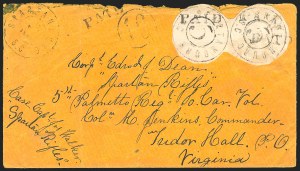 PAID
PAID
5
Corp'l Edms'd J. Dean
"Spartan Rifles"
5th "Palmetto Reg" So. Car. Vol.
Col" M. Jenkins, Commander
"Tudor Hall, P.O.
Virginia
Care Capt Jos Walker
Spartan Rifles